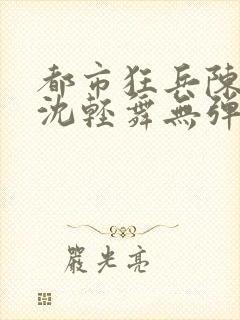 都市狂兵陳
沈輕舞無彈
嚴光亮